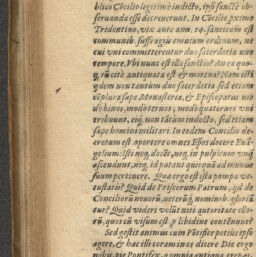 blico Cōcilio legitime indicto, ipsi sanctè ob-
seruanda esse decreuerunt. In Cōcilio proximo
Tridentino, vix ante ann. 14. sancitum est
communib. suffragiis omnium ordinum, ne
cui vni committerentur duo sacerdotia vno
tempore. Vbi nunc est illa sanctio? An ea quo-
q; tā citò antiquata est & mortua? Nam isti
quidem non tantùm duo sacerdotia, sed etiam
cōplura sæpe Monasteria, & Episcopatus
nobinos, modò ternos, modò quaternos vni
tribuunt, eiq; non tātùm indocto, sed etiam
sæpe homini militari. In eodem Concilio de-
cretum est oportere omnes Ep̄os docere Euā-
gelium: isti neq; docēt, neq; in pulpitum vnquā
ascendunt, neq; id putant quicquā ad munus
suum pertinere. Quæ ergo est ista pompa ve-
tustatis? Quid de Priscorum Patrum, qd de
Conciliorū nouorū, veterūq; nominib. gloriā
tur? Quid videri volūt niti autoritate illo-
rū, quos cū visum est p libidine contēnunt?
Sed gestit animus cum Pōtifice potiùs ipso
agere, & hæc illi coram in os dicere. Dic ergo
nobis, pie Pontifex, omnia antiqua crepas,